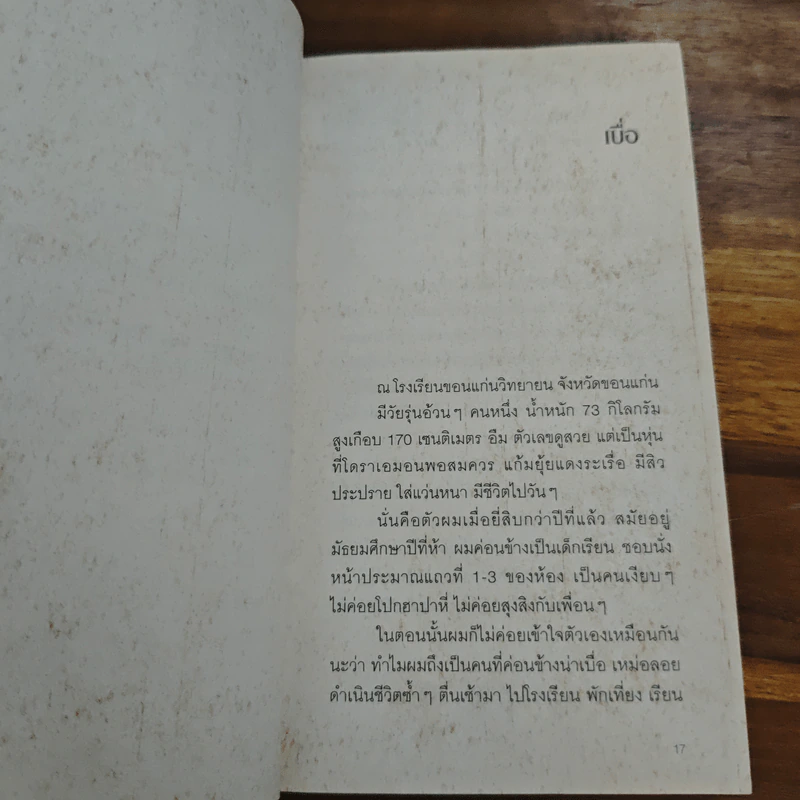 เบื่อ
ณ โรงเรียนขอนแก่นวิทยายน จังหวัดขอนแก่น
มีวัยรุ่นอ้วนๆ คนหนึ่ง น้ำหนัก 73 กิโลกรัม
สูงเกือบ 170 เซนติเมตร อืม ตัวเลขดูสวย แต่เป็นหุ่น
ที่โดราเอมอนพอสมควร แก้มยุ้ยแดงระเรื่อ มีสิว
ประปราย ใส่แว่นหนา มีชีวิตไปวันๆ
นั่นคือตัวผมเมื่อยี่สิบกว่าปีที่แล้ว สมัยอยู่
มัธยมศึกษาปีที่ห้า ผมค่อนข้างเป็นเด็กเรียน ชอบนั่ง
หน้าประมาณแถวที่ 1-3 ของห้อง เป็นคนเงียบๆ
ไม่ค่อยโปกฮาปาหี่ ไม่ค่อยสุงสิงกับเพื่อนๆ
ในตอนนั้นผมก็ไม่ค่อยเข้าใจตัวเองเหมือนกัน
นะว่า ทำไมผมถึงเป็นคนที่ค่อนข้างน่าเบื่อ เหม่อลอย
ดำเนินชีวิตซ้ำๆ ตื่นเช้ามา ไปโรงเรียน พักเที่ยง เรียน
17